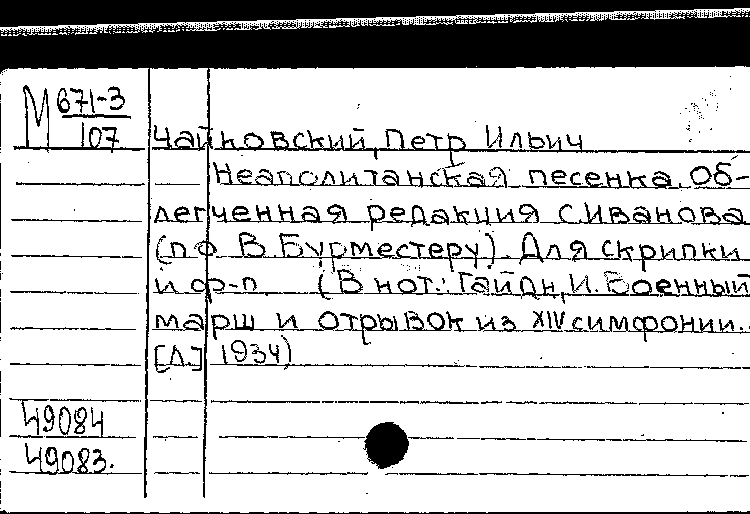 М 671-3
107
Чайковский, Петр Ильич
Неаполитанская песенка. Об-
легченная редакция С.Иванова
(по В. Бурместеру). Для скрипки
и ф-п (В нот.: Гайдн, И. Военный
марш и отрывок из XIV симфонии.
[Л.] 1934)
49084
49083.